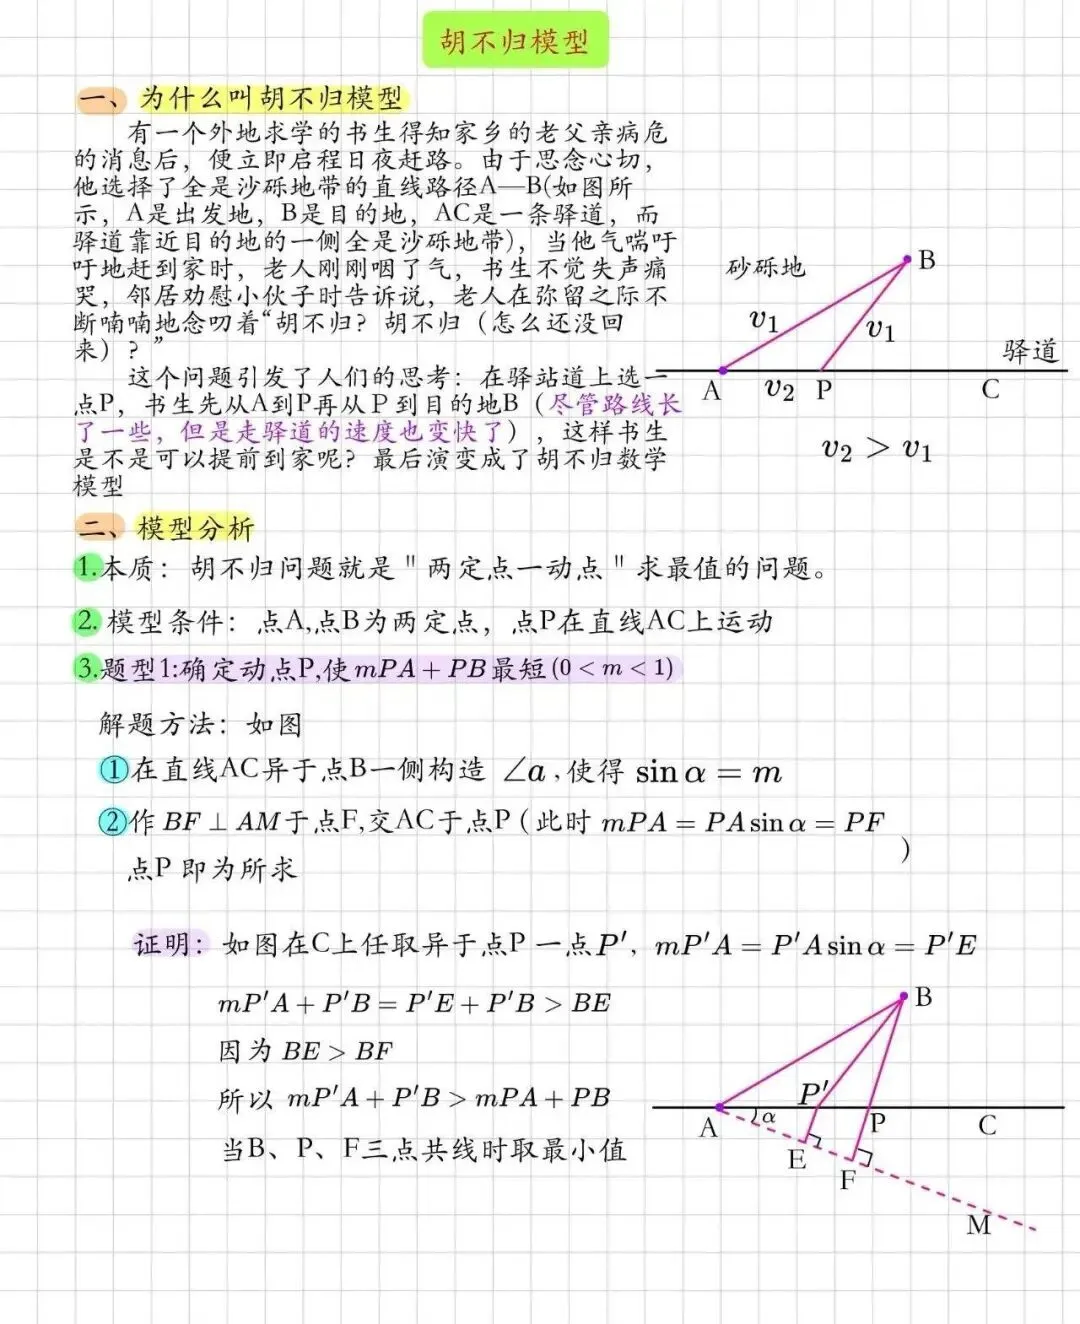 胡不归模型
一、为什么叫胡不归模型
有一个外地求学的书生得知家乡的老父亲病危
的消息后，便立即启程日夜赶路。由于思念心切，
他选择了全是沙砾地带的直线路径A—B(如图所
示，A是出发地，B是目的地，AC是一条驿道，而
驿道靠近目的地的一侧全是沙砾地带)，当他气喘吁
吁地赶到家时，老人刚刚咽了气，书生不觉失声痛
哭，邻居劝慰小伙子时告诉说，老人在弥留之际不
断喃喃地念叨着“胡不归？胡不归（怎么还没回
来）？”
这个问题引发了人们的思考：在驿站道上选一
点P，书生先从A到P再从P到目的地B（尽管路线长
了一些，但是走驿道的速度也变快了），这样书生
是不是可以提前到家呢？最后演变成了胡不归数学
模型
砂砾地
B
v₁
v₁
驿道
A
v₂
P
C
v₂ > v₁
二、模型分析
1.本质：胡不归问题就是"两定点一动点"求最值的问题。
2.模型条件：点A,点B为两定点，点P在直线AC上运动
3.题型1:确定动点P,使mPA+PB最短(0<m<1)
解题方法：如图
①在直线AC异于点B一侧构造 ∠a,使得 sin α = m
②作 BF ⊥ AM于点F,交AC于点P（此时 mPA = PA sin α = PF
）
点P 即为所求
证明：如图在C上任取异于点P 一点P′, mP′A = P′A sin α = P′E
mP′A + P′B = P′E + P′B > BE
因为 BE > BF
所以 mP′A + P′B > mPA + PB
当B、P、F三点共线时取最小值
B
P′
A
α
P
C
E
F
M